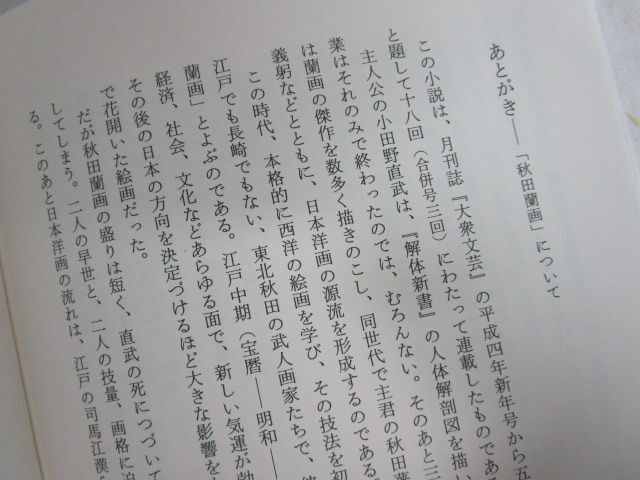 あとがき――「秋田蘭画」について
この小説は、月刊誌『大衆文芸』の平成四年新年号から五
と題して十八回（合併号三回）にわたって連載したものである
主人公の小田野直武は、『解体新書』の人体解剖図を描い
業はそれのみで終わったのでは、むろんない。そのあと三
は蘭画の傑作を数多く描きのこし、同世代で主君の秋田藩
義躬などとともに、日本洋画の源流を形成するのである
この時代、本格的に西洋の絵画を学び、その技法を初
江戸でも長崎でもない、東北秋田の武人画家たちで、
蘭画」とよぶのである。江戸中期（宝暦――明和――
経済、社会、文化などあらゆる面で、新しい気運が勃
その後の日本の方向を決定づけるほど大きな影響を
で花開いた絵画だった。
だが秋田蘭画の盛りは短く、直武の死につづいて
してしまう。二人の早世と、二人の技量、画格に迫
る。このあと日本洋画の流れは、江戸の司馬江漢